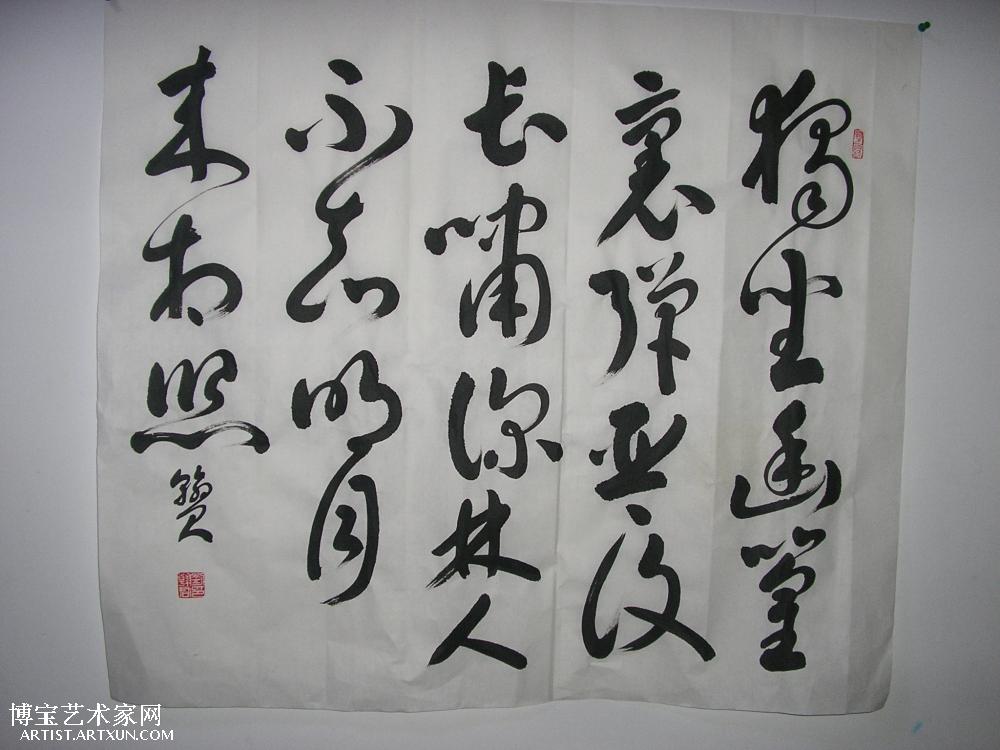 獨坐幽篁
裏彈琴復
长嘯深林人
不知明月
来相照
博宝艺术家网
ARTIST.ARTXUN.COM